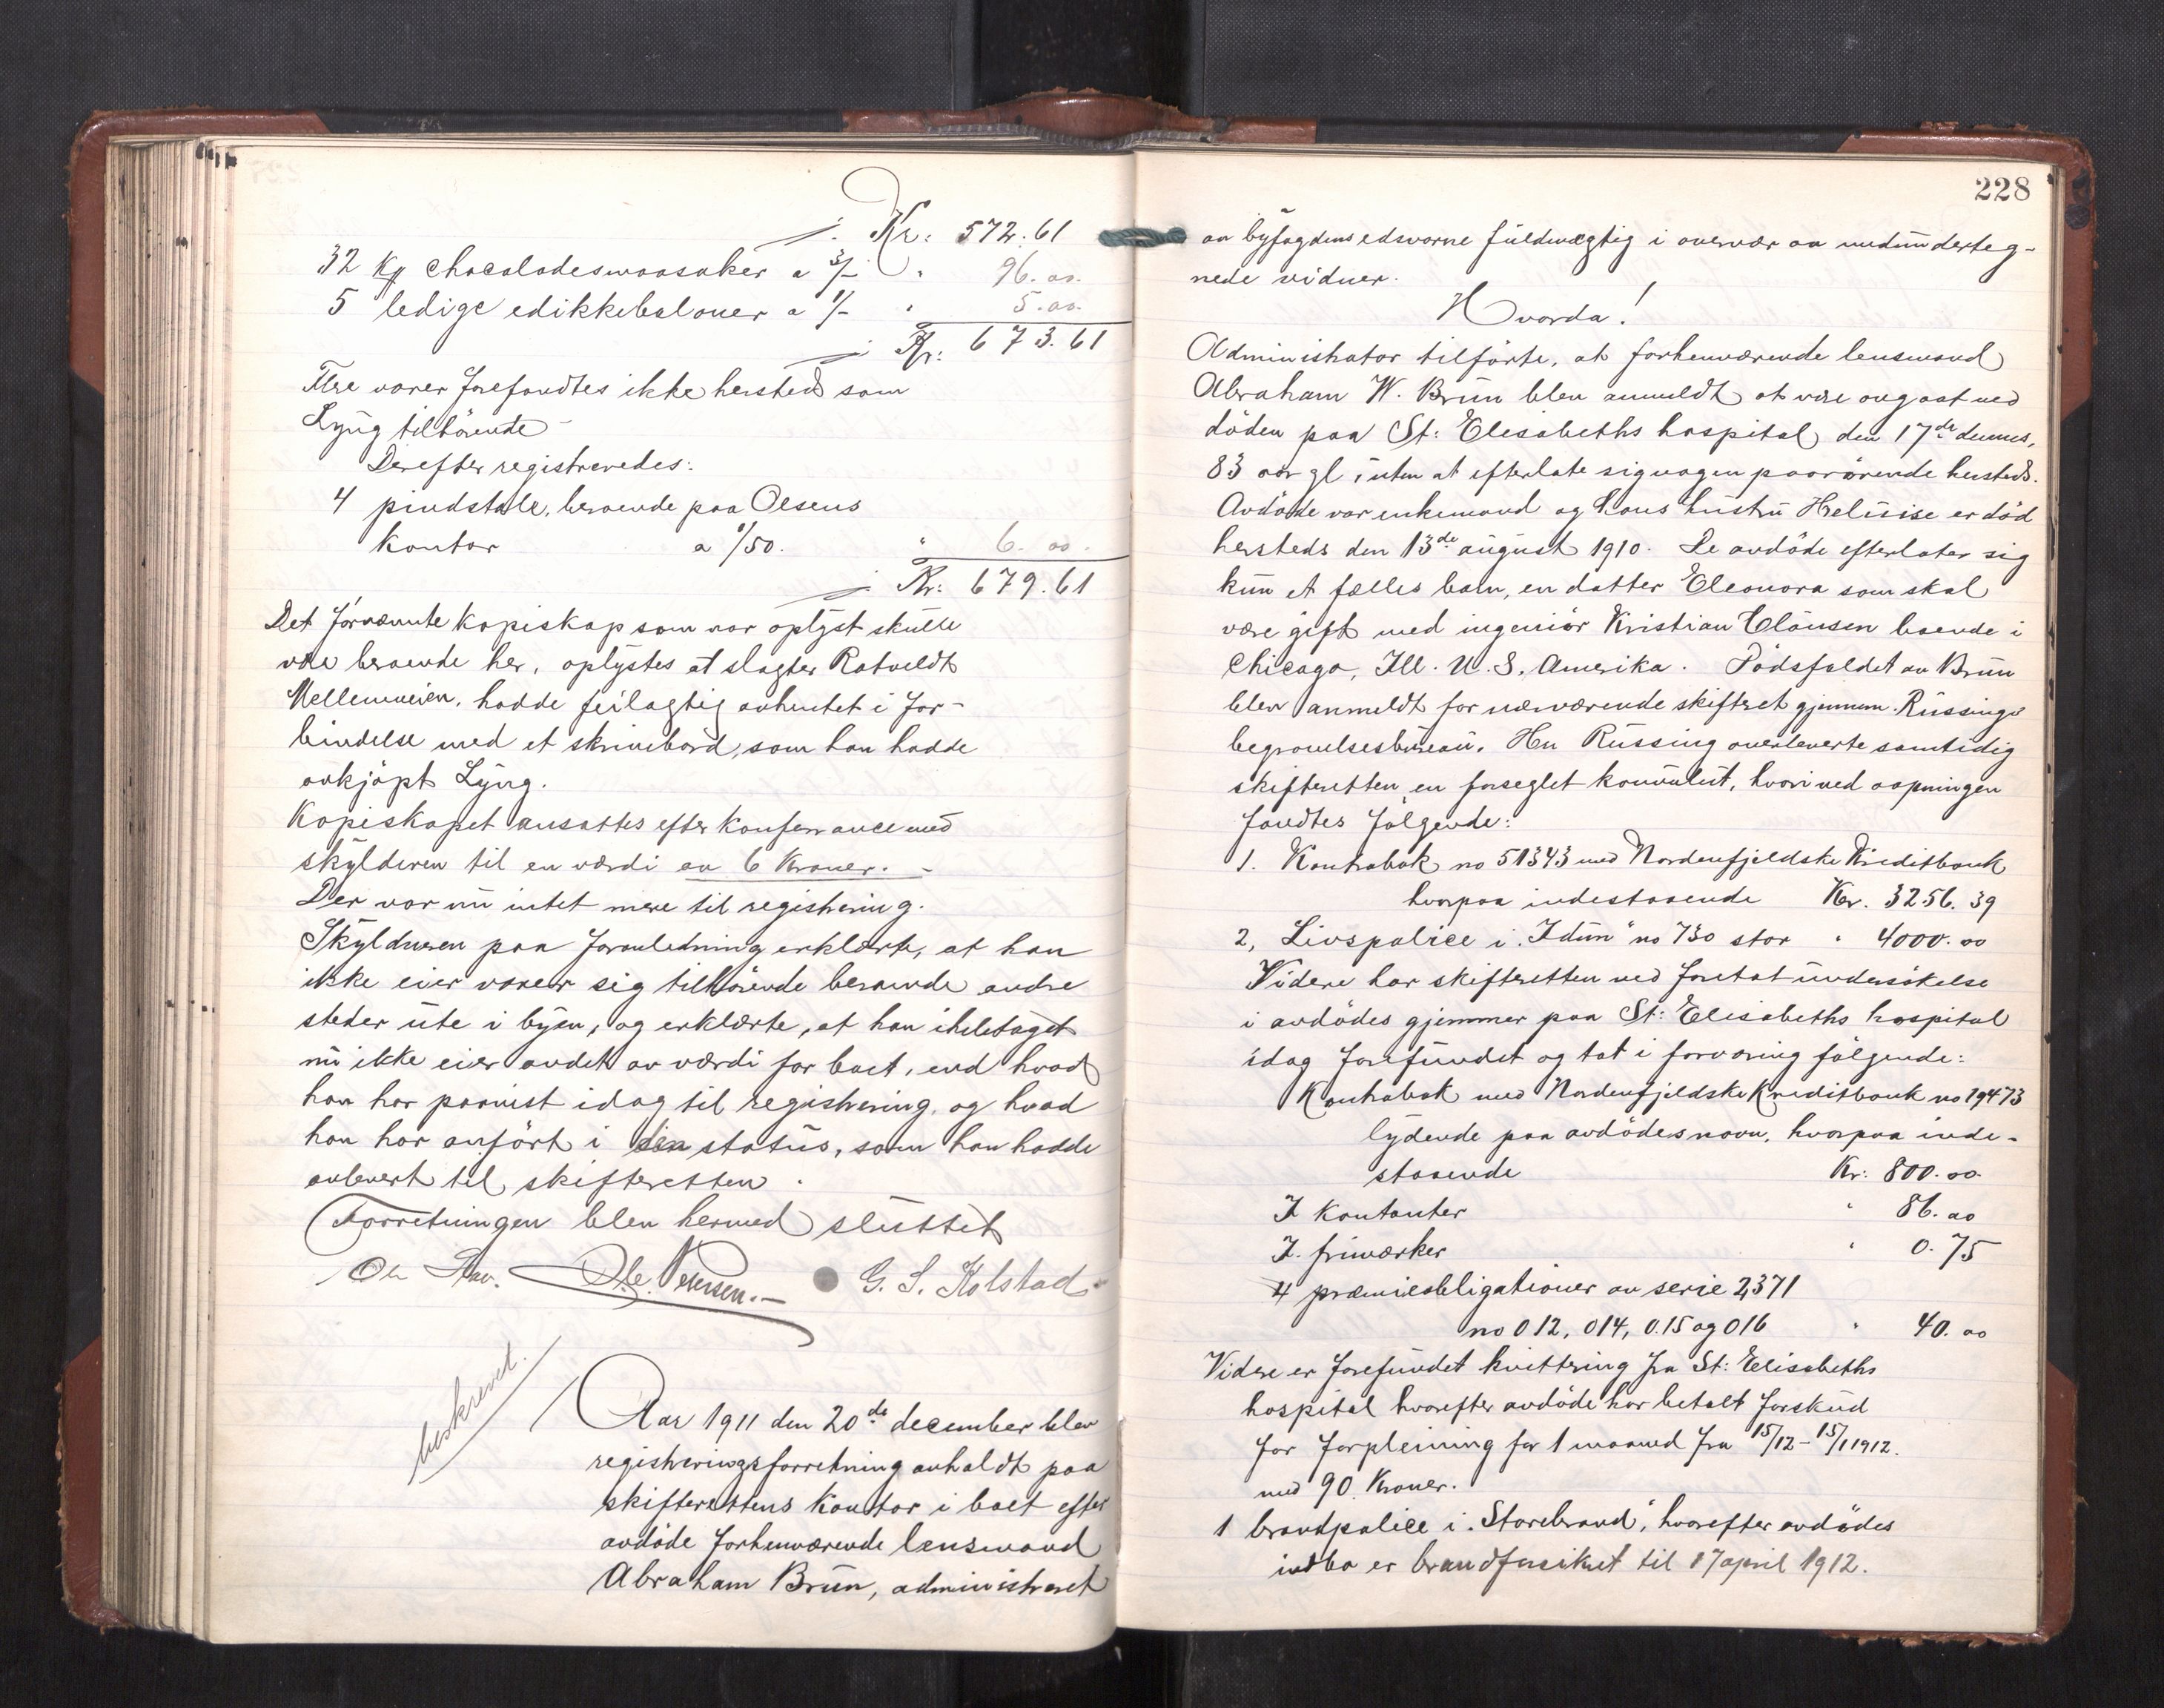 Kr: 572.61
32 Kg chocolodesmaasaker a 3/- " 96.00.
5 ledige edikkebaloner a 1/- " 5.00.
Kr: 673.61
Flere varer forefandtes ikke hersteds som
Lyng tilhörende
Derefter registreredes:
4 pindstole, beroende paa Olsens
kontor a 1/50. " 6.00.
Kr: 679.61
Det förnævnte kopiskap som var oplyst skulle
være beroende her, oplystes at slagter Rotveldt
Mellemveien, hadde feilagtig avhentet i for-
bindelse med et skrivebord, som han hadde
avkjöpt Lyng.
Kopiskapet ansattes efter konferance med
skylderen til en værdi av 6 Kroner. -
Der var nu intet mere til registrering.
Skylderen paa foranledning erklærte, at han
ikke eier varer sig tilhörende beroende andre
steder ute i byen, og erklærte, at han iheletaget
nu ikke eier andet av værdi for boet, end hvad
han har paavist idag til registrering, og hvad
han har anfört i sin status, som han hadde
avlevert til skifteretten.
Forretningen blev hermed sluttet
Ole Petersen.- G. S. Kolstad
beskrevet.
Aar 1911 den 20de december blev
registreringsforretning avholdt paa
skifterettens kontor i boet efter
avdöde forhenværende lensmand
Abraham Brun, administreret
228
av byfogdens edsvorne fuldmægtig i overvær av medunderteg-
nede vidner.
Hvorda!
Administrator tilförte, at forhenværende lensmand
Abraham W. Brun blev anmeldt at være avgaat ved
döden paa St: Elisabeths hospital den 17de dennes,
83 aar gl, uten at efterlate sig nogen paarörende hersteds.
Avdöde var enkemand og hans hustru Helvise er död
hersteds den 13de august 1910. De avdöde efterlater sig
kun et fælles barn, en datter Eleonora som skal
være gift med ingeniör Kristian Clausen boende i
Chicago, Ill. U. S. Amerika. Dödsfaldet av Brun
blev anmeldt for nærværende skifteret gjennem Rüssings
begravelsesbureau. Hr Rüssing overleverte samtidig
skifteretten en forseglet konvolut, hvori ved aapningen
fandtes fölgende:
1. Kontrabok no 51343 med Nordenfjeldske Kreditbank
hvorpaa indestaaende Kr. 3256.39
2, Livspolice i "Idun" no 730 stor " 4000.00
Videre har skifteretten ved foretat undersökelse
i avdödes gjemmer paa St: Elisabeths hospital
idag forefundet og tat i forvaring fölgende:
Kontrabok med Nordenfjeldske Kreditbank no 19473
lydende paa avdödes navn, hvorpaa inde-
staaende Kr: 800.00.
I kontanter " 86.00
I. frimærker " 0.75
4 præmieobligationer av serie 2371
no 012, 014, 015 og 016 " 40.00
Videre er forefundet kvittering fra St: Elisabeths
hospital hvorefter avdöde har betalt forskud
for forpleining for 1 maaned fra 15/12-15/1 1912.
med 90 Kroner.
1 brandpolice i "Storebrand", hvorefter avdödes
indbo er brandforsikret til 17 april 1912.